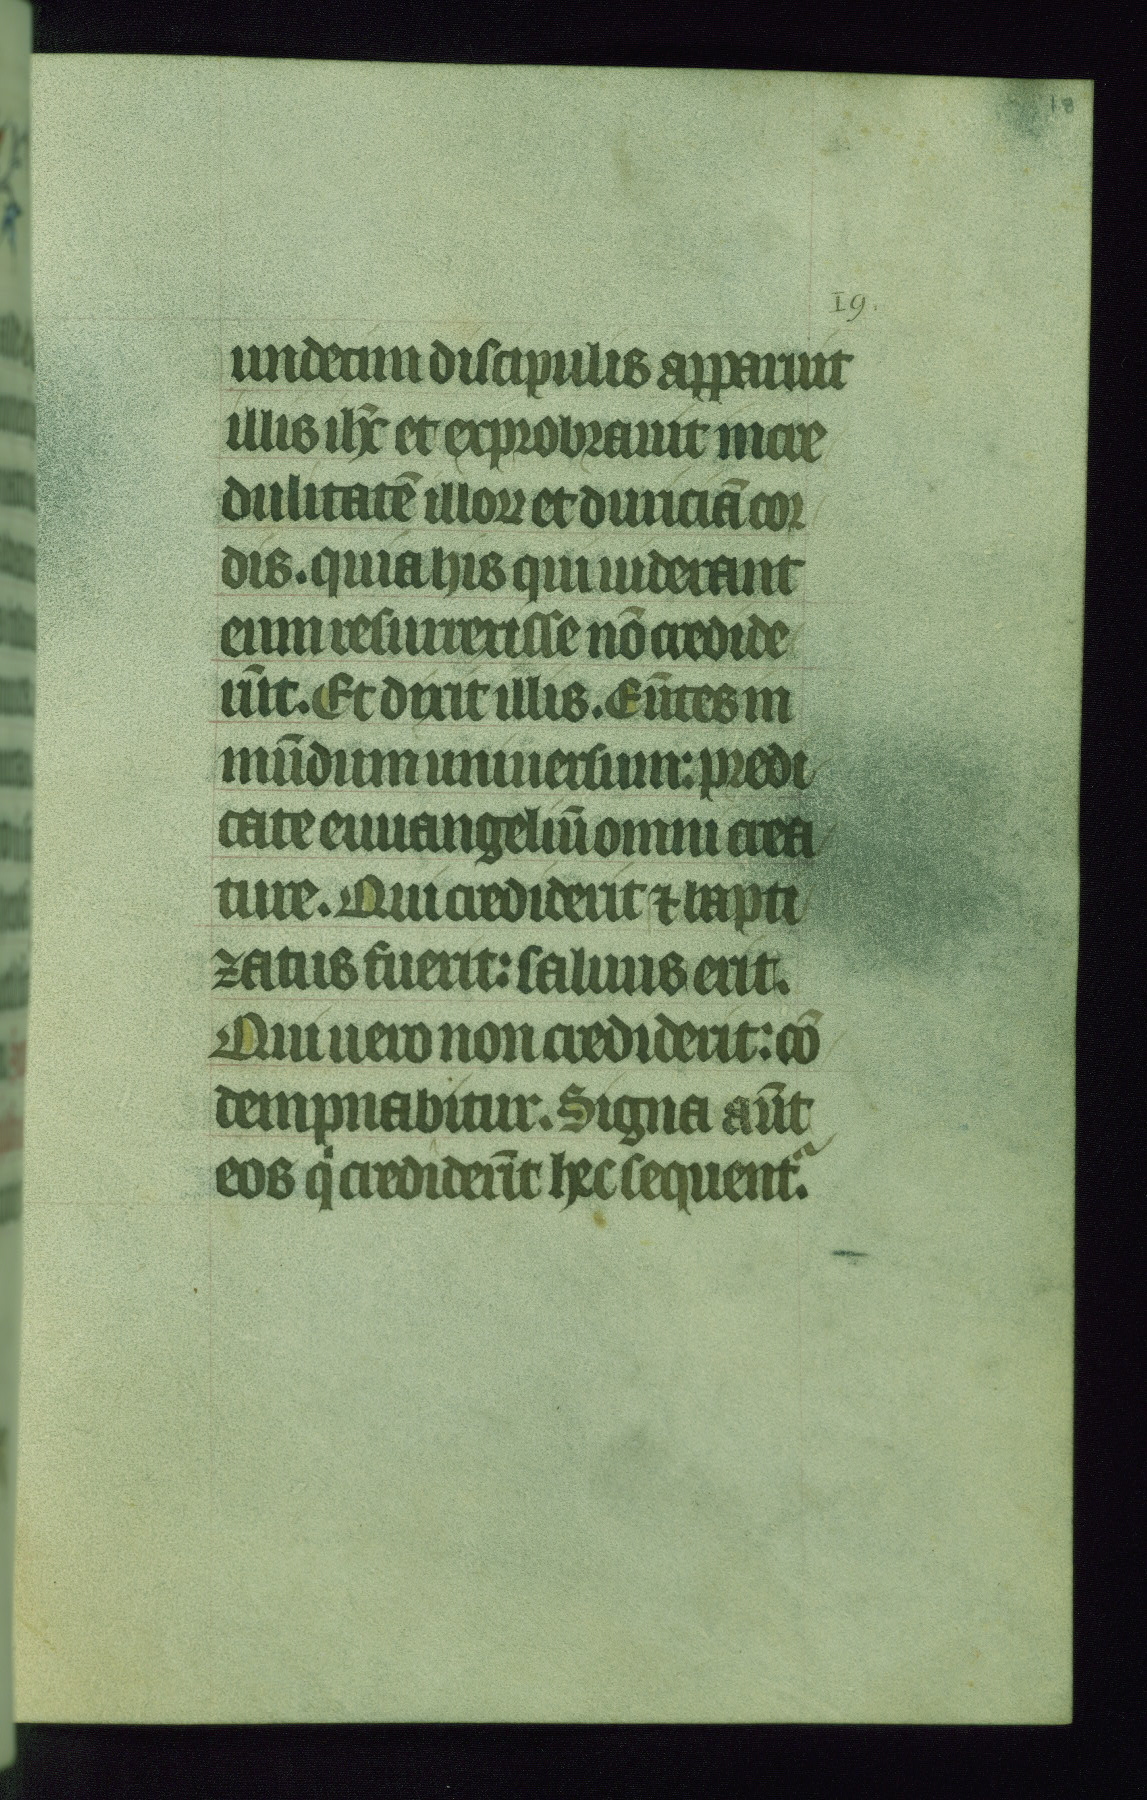 18
19.
undecim discipulis apparuit
illis ihc̄ et exprobrauit incre
dulitatē illoꝝ et duriciā cor
dis. quia his qui uiderant
eum resurrexisse nō credide
rūt. Et dixit illis. Eūtes in
mūdum uniuersum: predi
cate euuangeliū omni crea
ture. Qui crediderit ⁊ bapti
zatus fuerit: saluus erit.
Qui uero non crediderit: cō
dempnabitur. Signa aūt
eos qͥ crediderīt hec sequent᷑.